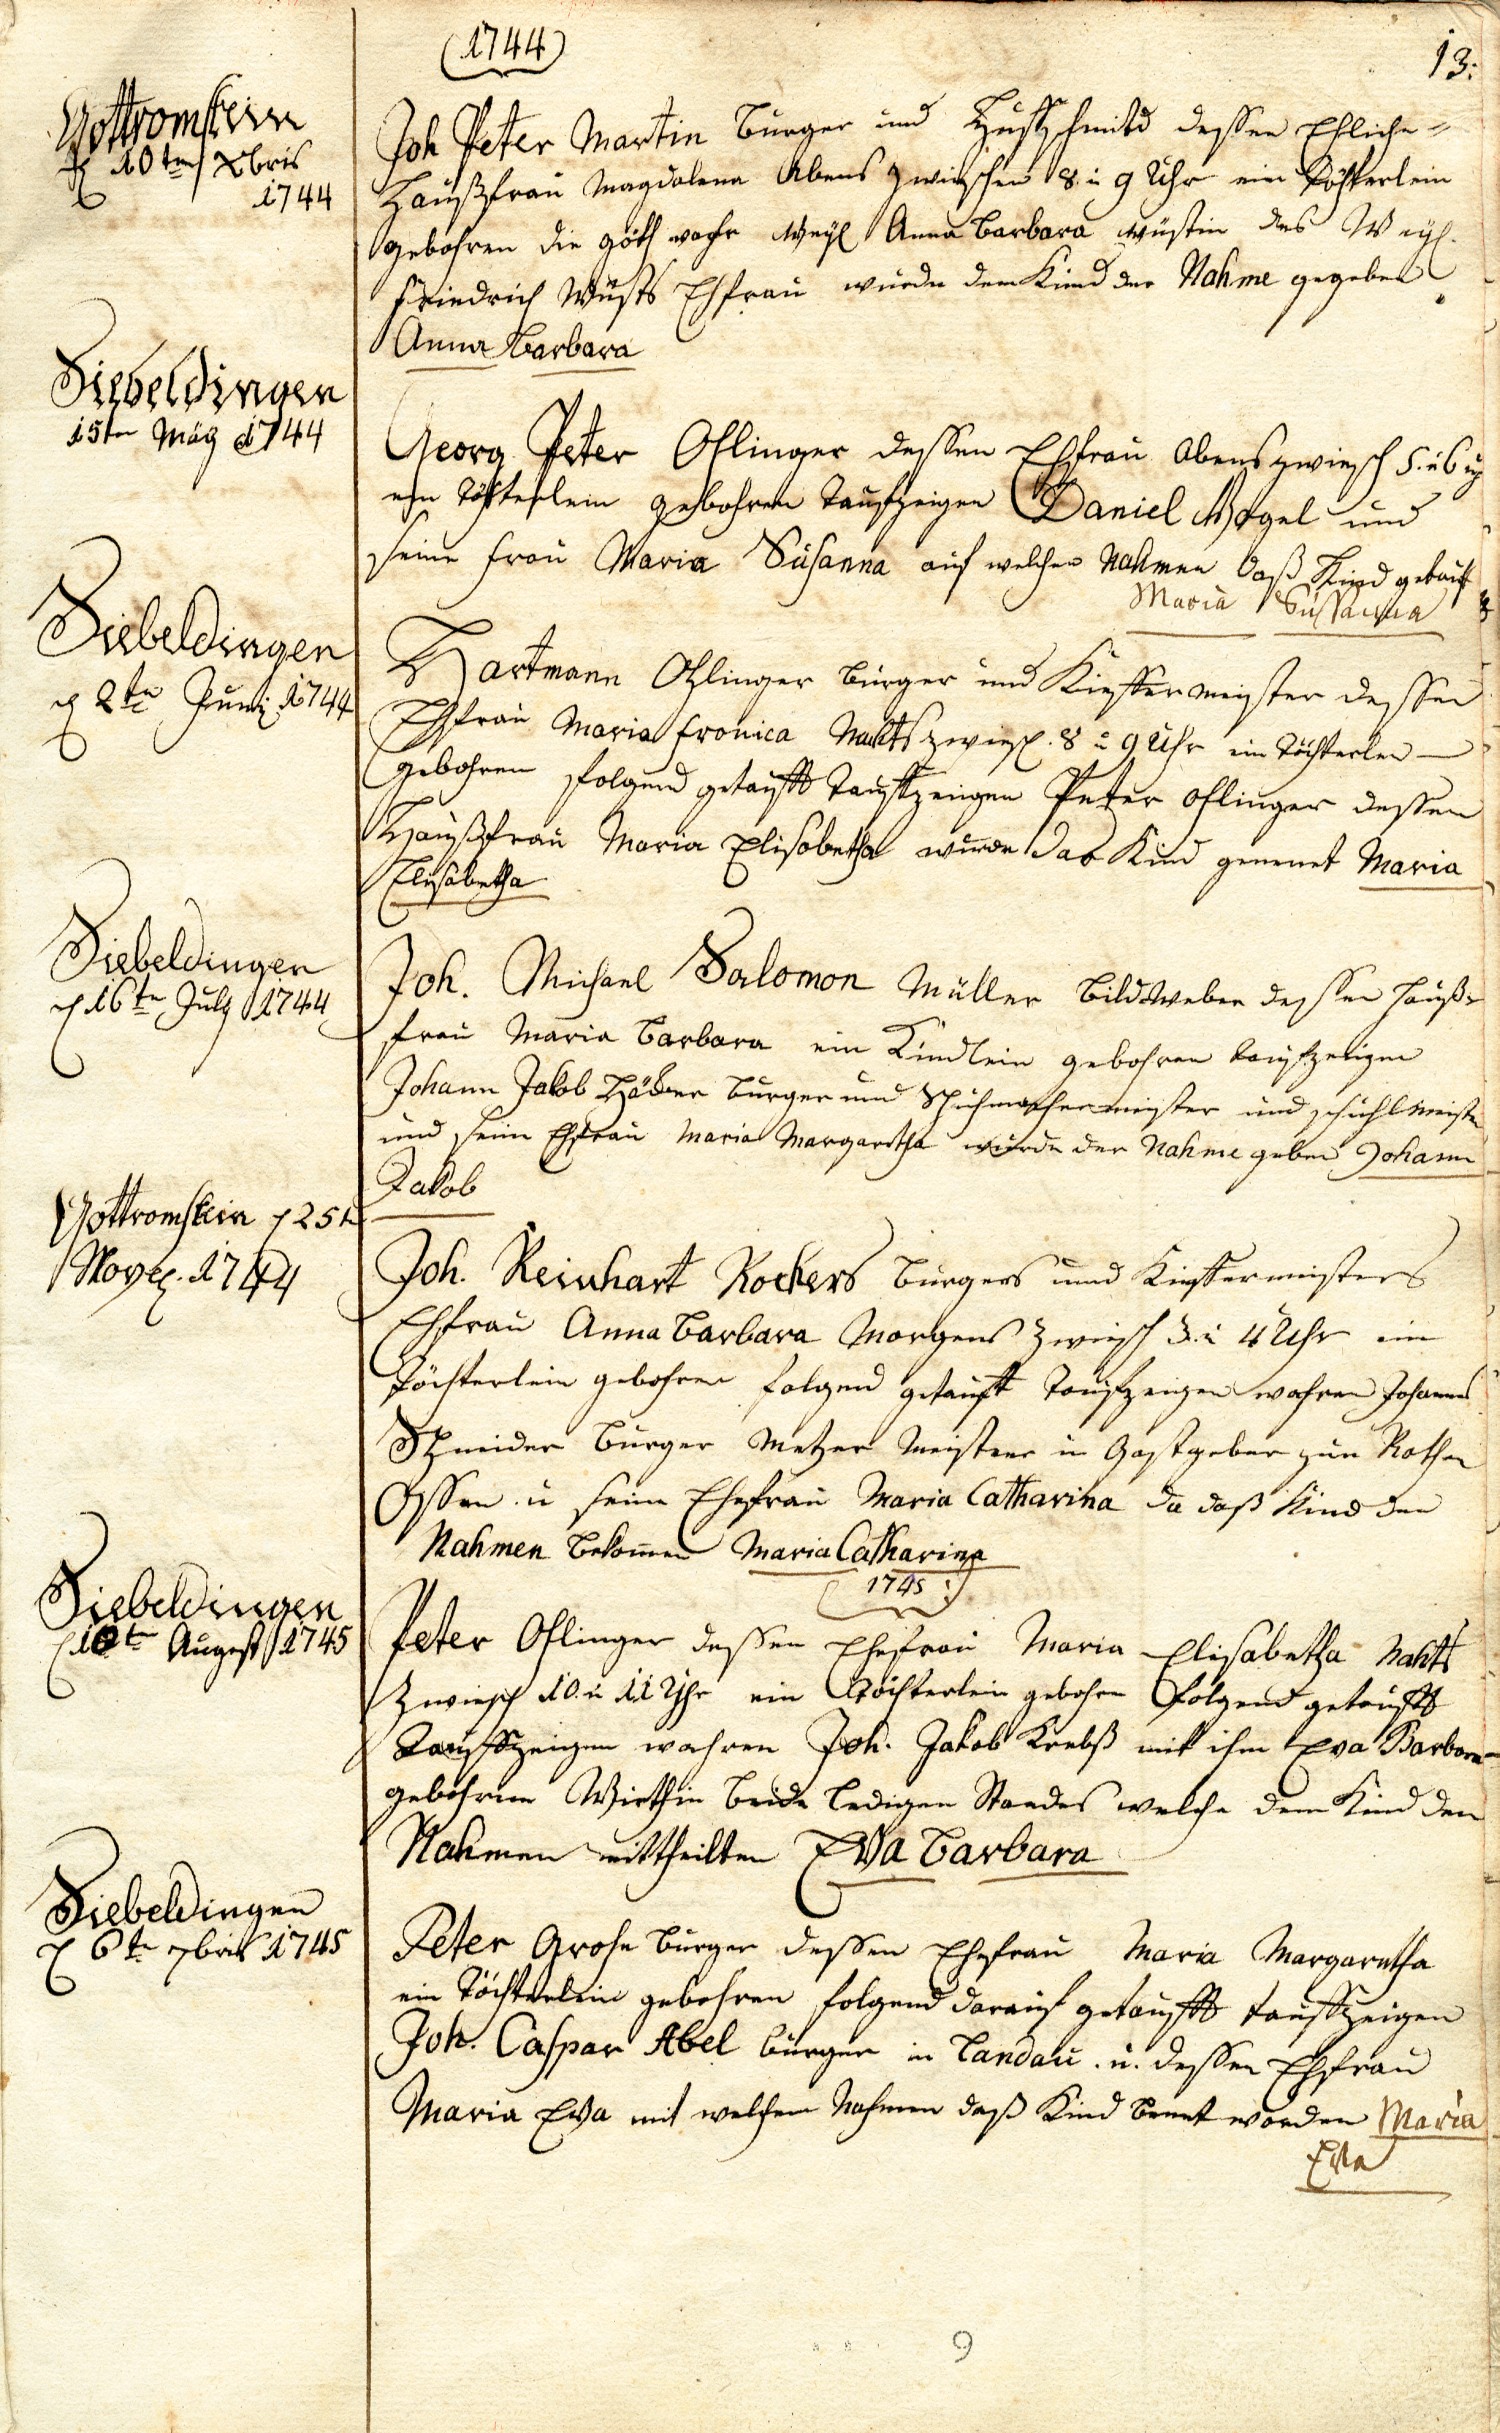 (1744)
13.
Gottromstein
d 10ten Xbris
1744
Joh Peter Martin Burger und Huffschmitd dessen Ehliche
Haußfrau Magdalena Abens zwieschen 8. u 9 Uhr ein Töchterlein
gebohren die Göth wahr Weyl Anna Barbara Wüstin des Weyl.
Friedrich Wüsts Ehfrau wurde dem Kind der Nahme gegeben
Anna Barbara
Siebeldingen
15ten 1744
Georg Peter Ohlinger dessen Ehfrau Abens zwiesch 5. u 6
ein Töchterlein gebohren Taufzeigen Daniel Vogel und
seine frau Maria Susanna auf welchen Nahmen daß Kind getauft
Maria Sussanna
Siebeldingen
d 2te Juni 1744
Hartmann Ohlinger Burger und Kieffermeister dessen
Ehfrau Maria fronica Nachts zwiesch. 8 u 9 Uhr ein Töchterlen
gebohren folgend getaufft Taufzeigen Peter Ohlinger dessen
Haußfrau Maria Elisabetha wurde das Kind genenet Maria
Elisabetha
Siebeldingen
d 16te July 1744
Joh. Michael Salomon Müller Bildweber dessen Hauß
frau Maria Barbara ein Kindlein gebohren taufzeigen
Johann Jakob Burger und Schuhmachermeister und schuhlmeister
und seine Ehfrau Maria Margaretha wurde der Nahme geben Johann
Jakob
Gottromstein d 25t
Novem. 1744
Joh. Reinhart Rockers Burgers und Kieffermeisters
Ehfrau Anna Barbara Morgens zwiesch 3. u 4 Uhr ein
Töchterlein gebohren folgend getauft Taufzeigen wahren Johannes
Schneider Burger Metzer Meister u Gastgeber zum Rothen
Ossen u seine Ehefrau Maria Catharina da daß Kind den
Nahmen bekommen Maria Catharina
(1745:)
Siebeldingen
d 10te August 1745
Peter Ohlinger dessen Ehefrau Maria Elisabetha Nachts
zwiesch 10. u 11 Uhr ein Töchterlein gebohren folgend getaufft
Taufszeigen wahren Joh. Jakob Krebß mit ihm Eva Barbara
gebohrne Wirthin beide ledigen Standes welche dem Kind den
Nahmen mittheilten Eva Barbara
Siebeldingen
d 6te 7bris 1745
Peter Grohe Burger dessen Ehefrau Maria Margaretha
ein Töchterlein gebohren folgend darauf getaufft tauffzeigen
Joh. Caspar Abel burger in Landau. u. dessen Ehfrau
Maria Eva mit welchem Nahmen daß Kind benet worden Maria
Eva
9